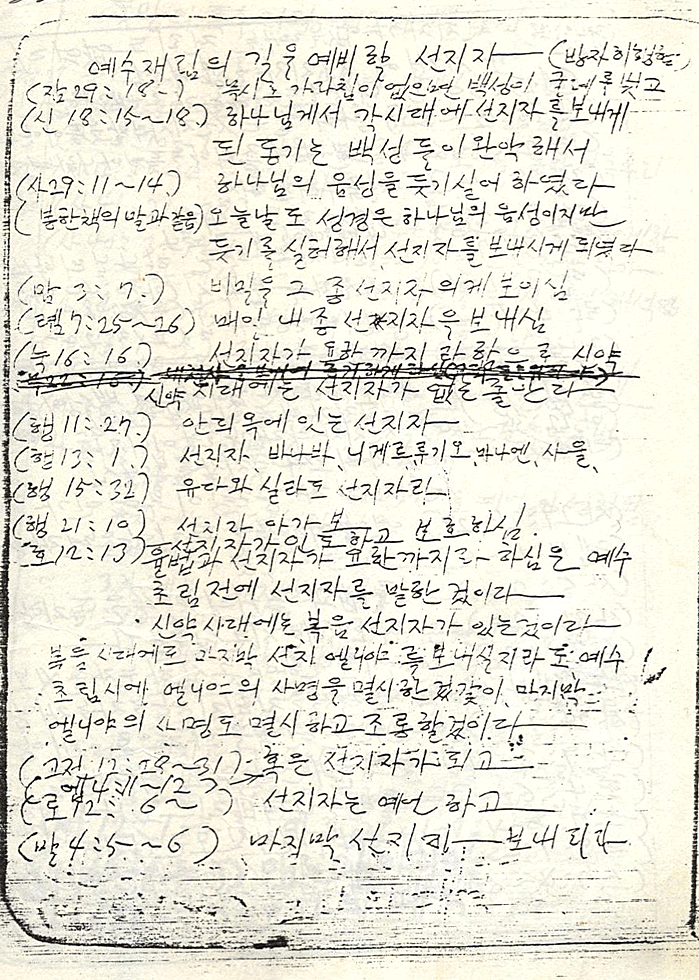 예수재림의 길을 예비할 선지자 — (방자히행함)
(잠29:18-) 묵시로 가라침이 없으면 백성이
(신 18:15~18.) 하나님게서 각시대에 선지자를 보내게
된 동기는 백성들이 완악해서
(사29:11~14.) 하나님의 음성을 듯기실어 하였다
(봉한책의 말과 같음) 오늘날도 성경은 하나님의 음성이지만
듯기를 실허해서 선지자를 보내시게 되였다
(암 3:7.) 비밀을 그 종 선지자의게 보이심
(렘7:25~26) 매일 내 종 선지자을 보내심
(눅16:16.) 선지자가 요한까지라 함으로 신약
신약 시대에는 선지자가 없는줄 안다
(행 11:27.) 안듸옥에 잇는 선지자
(행13:1.) 선지자, 바나바, 니게르루기오, 마나엔, 사울,
(행 15:32) 유다와 실라도 선지자라
(행 21:10) 선지자 아가보
(호12:13) 선지자가 인도하고 보호하심.
율법과 선지자가 요한까지라 하심은 예수
초림전에 선지자를 말한 겄이다
· 신약시대에는 복음 선지자가 있는겄이라
복음시대에도 마지막 선지 엘니야를 보내실지라도 예수
초림시에 엘니야의 사명을 멸시한겄갗이 마지막
엘니야의 사명도 멸시하고 조롱할겄이다
(고전 12:28~31) 혹은 선지자가 되고
(엡4:11~12)
(로12:6~) 선지자는 예언하고
(말4:5~6) 마지막 선지 — 보내리라